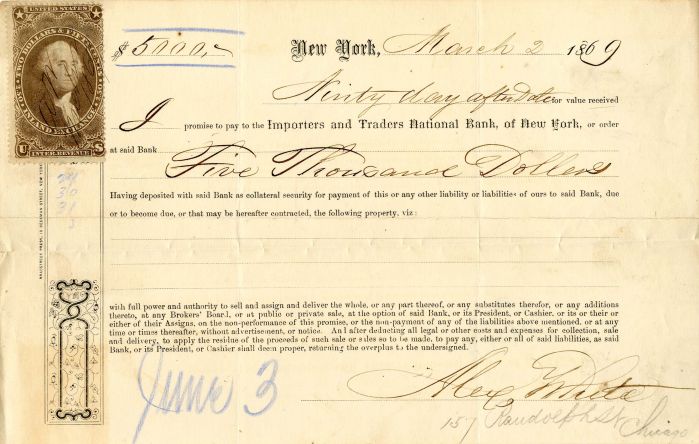 UNITED STATES
TWO DOLLARS & FIFTY CENTS
INLAND EXCHANGE
U INTER. REVENUE S
$5000,-
New York, March 2 1869
Ninty day after Date for value received
I promise to pay to the Importers and Traders National Bank, of New York, or order
at said Bank Five Thousand Dollars
Having deposited with said Bank as collateral security for payment of this or any other liability or liabilities of ours to said Bank, due
or to become due, or that may be hereafter contracted, the following property, viz:
with full power and authority to sell and assign and deliver the whole, or any part thereof, or any substitutes therefor, or any additions
thereto, at any Brokers' Board, or at public or private sale, at the option of said Bank, or its President, or Cashier, or its or their or
either of their Assigns, on the non-performance of this promise, or the non-payment of any of the liabilities above mentioned, or at any
time or times thereafter, without advertisement, or notice. And after deducting all legal or other costs and expenses for collection, sale
and delivery, to apply the residue of the proceeds of such sale or sales so to be made, to pay any, either or all of said liabilities, as said
Bank, or its President, or Cashier shall deem proper, returning the overplus to the undersigned.
Alex White
June 3
157 Randolph St Chicago